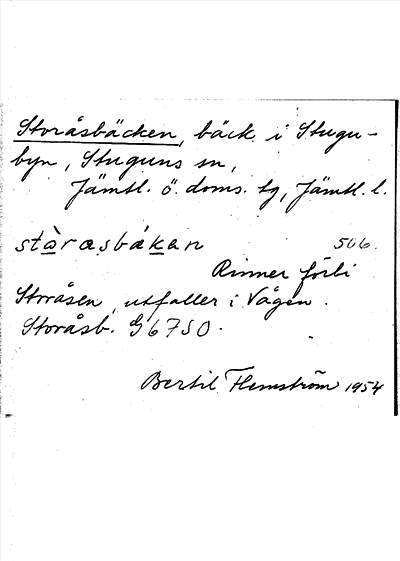 Storåsbäcken, bäck i Stugu-
byn, Stuguns sn,
Jämtl. ö. doms. tg, Jämtl. l.
stàrasbákan 506.
Rinner förbi
Storåsen, utfaller i Vågen.
Storåsb. G6750.
Bertil Flemström 1954